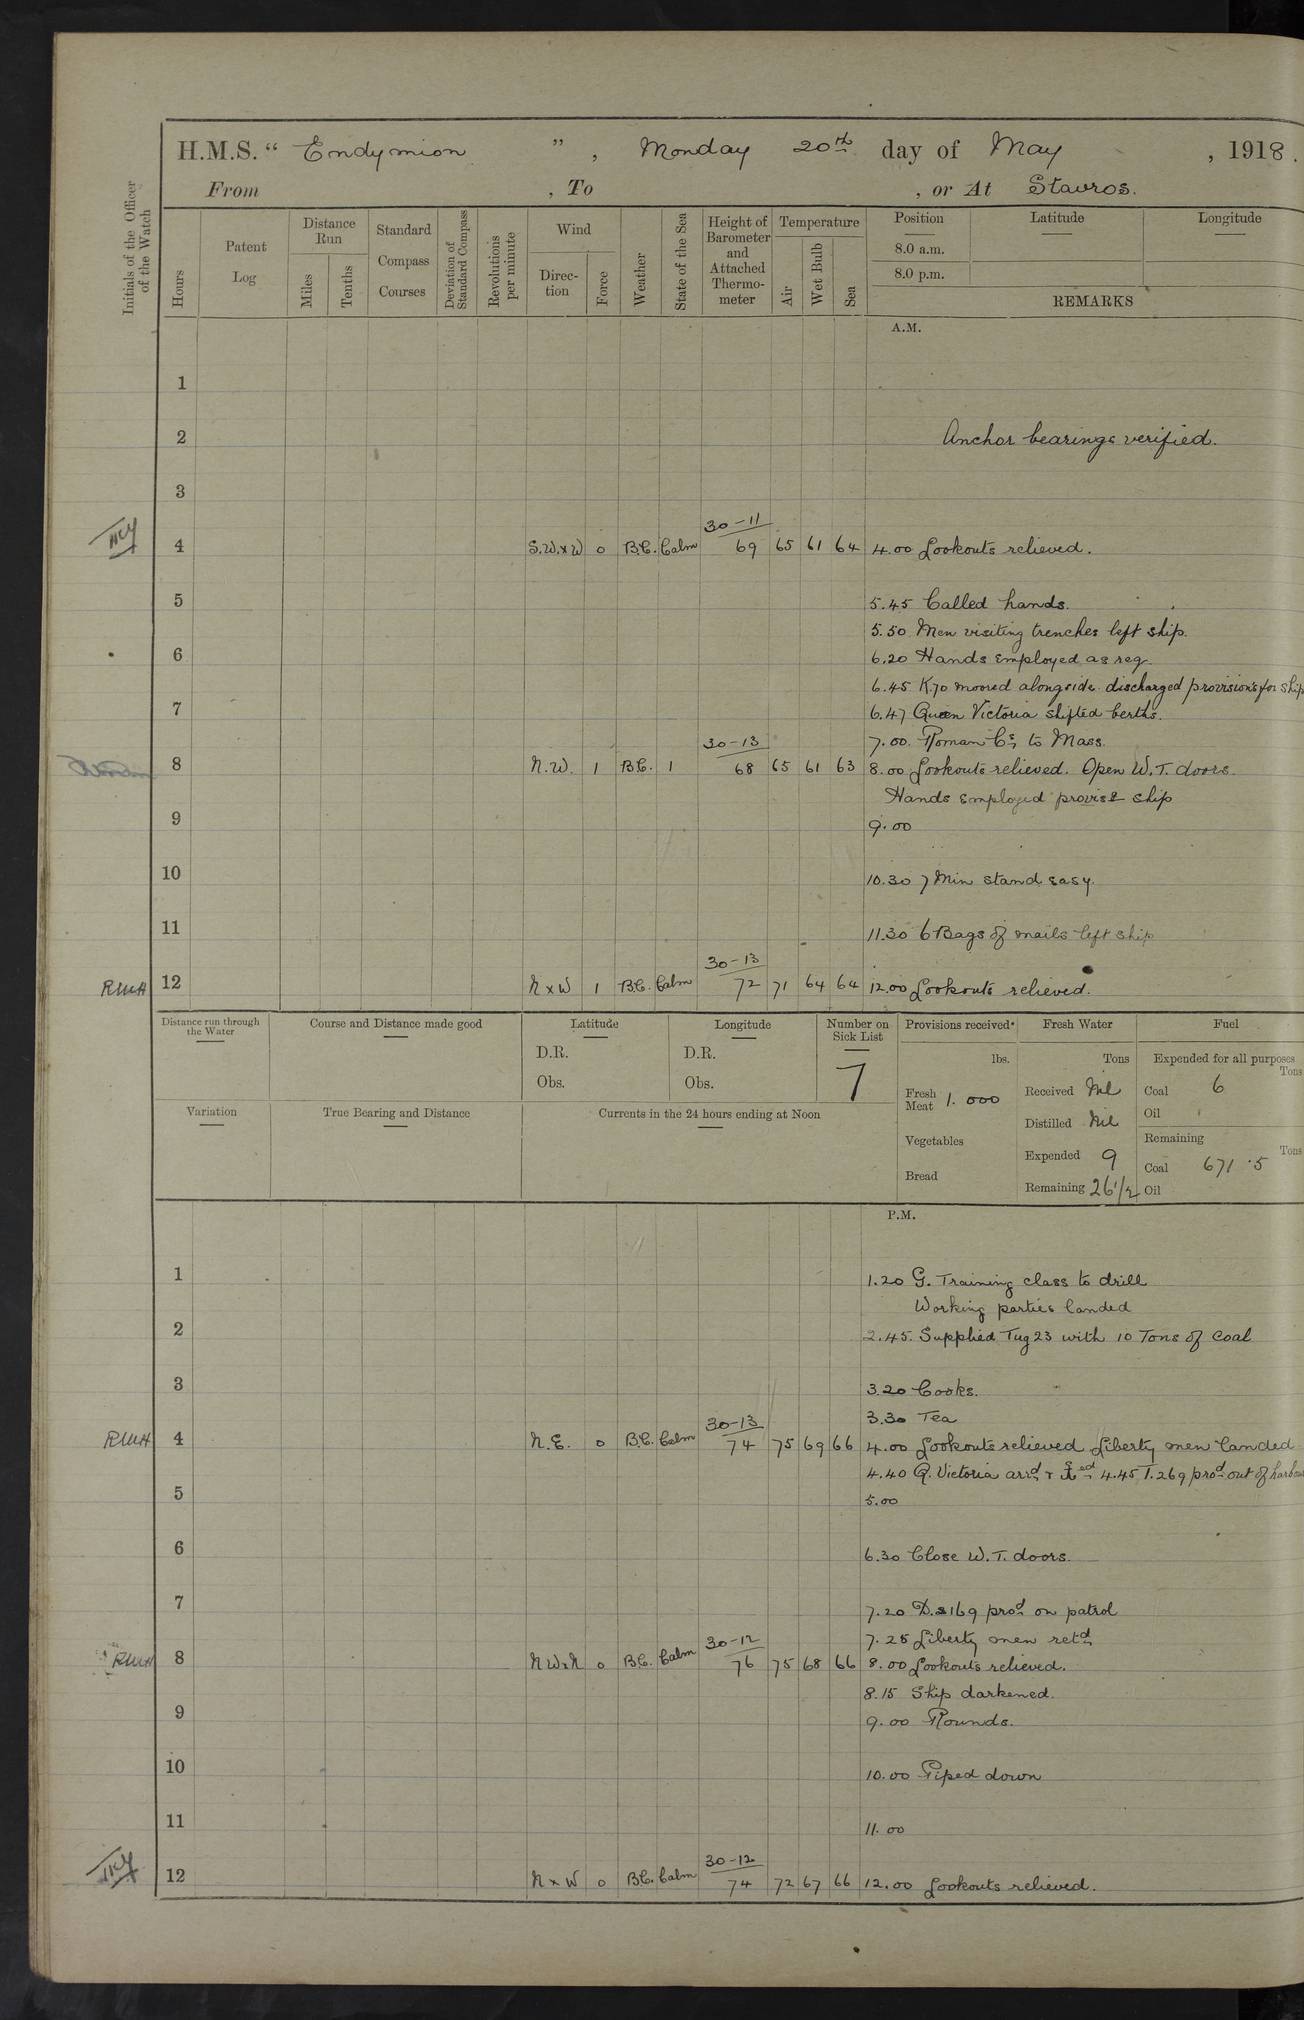 H.M.S. “ Endymion ” , Monday 20th day of May , 1918.
From , To , or At Stavros.
Initials of the Officer of the Watch
Hours
Patent Log
Distance Run
Miles
Tenths
Standard Compass Courses
Deviation of Standard Compass
Revolutions per minute
Wind
Direc-tion
Force
Weather
State of the Sea
Height of Barometer and Attached Thermo-meter
Temperature
Air
Wet Bulb
Sea
Position
8.0 a.m.
8.0 p.m.
Latitude
Longitude
REMARKS
A.M.
1
2 Anchor bearings verified.
3
30-11
4 S.W.xW 0 B.C. Calm 69 65 61 64 4.00 Lookouts relieved.
5 5.45 Called hands.
5.50 Men visiting trenches left ship.
6 6.20 Hands employed as req.
6.45 K.70 moored alongside. discharged provisions for ship
7 6.47 Queen Victoria shifted berths.
30-13 7.00. Roman Cs. to Mass.
8 N.W. 1 B.C. 1 68 65 61 63 8.00 Lookouts relieved. Open W.T. doors.
Hands employed provisg ship
9 9.00
10 10.30 7 Min stand easy.
11 11.30 6 Bags of mails left ship
30-13
RWH 12 N x W 1 B.C. Calm 72 71 64 64 12.00 Lookouts relieved.
Distance run through the Water
Course and Distance made good
Latitude
D.R.
Obs.
Longitude
D.R.
Obs.
Number on Sick List
7
Provisions received
lbs.
Fresh Meat 1.000
Vegetables
Bread
Fresh Water
Tons
Received Nil
Distilled Nil
Expended 9
Remaining 26 1/2
Fuel
Expended for all purposes
Tons
Coal 6
Oil
Remaining
Tons
Coal 671.5
Oil
Variation
True Bearing and Distance
Currents in the 24 hours ending at Noon
P.M.
1 1.20 G. Training class to drill
Working parties landed
2 2.45. Supplied Tug 23 with 10 Tons of coal
3 3.20 Cooks.
30-13 3.30 Tea
RWH 4 N.E. 0 B.C. Calm 74 75 69 66 4.00 Lookouts relieved Liberty men landed
4.40 Q. Victoria arrd + 4.45 T.269 prod out of harbour
5 5.00
6 6.30 Close W.T. doors.
7 7.20 D.s 169 prod on patrol
30-12 7.25 Liberty men retd
RWH 8 NWxN 0 B.C. Calm 76 75 68 66 8.00 Lookouts relieved.
8.15 Ship darkened.
9 9.00 Rounds.
10 10.00 Piped down
11 11.00
30-12
12 N x W 0 B.C. Calm 74 72 67 66 12.00 Lookouts relieved.